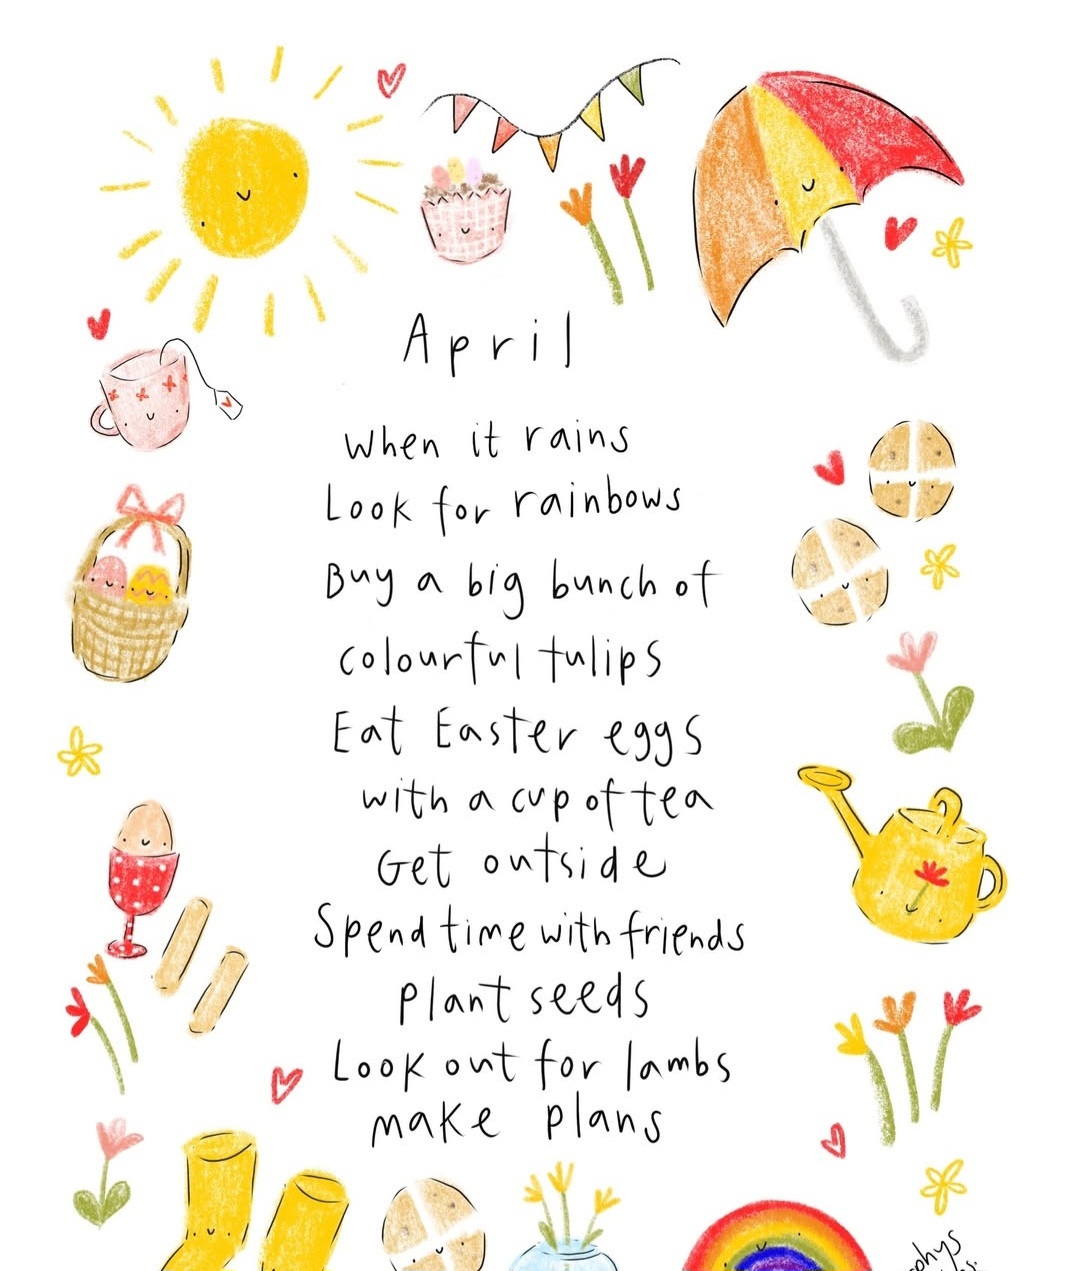 April
When it rains
Look for rainbows
Buy a big bunch of
colourful tulips
Eat Easter eggs
with a cup of tea
Get outside
Spend time with friends
Plant seeds
Look out for lambs
make plans